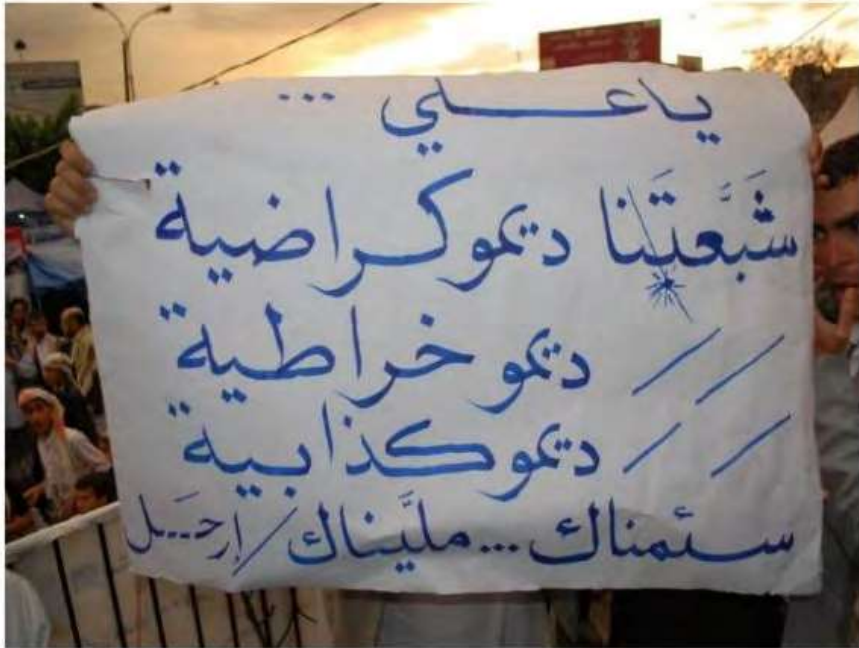 يا علي ...
شَبَّعتَنا ديموكراضية
// ديموخراطية
// ديموكذابية
سئمناك...مليَّناك/إرحَـل